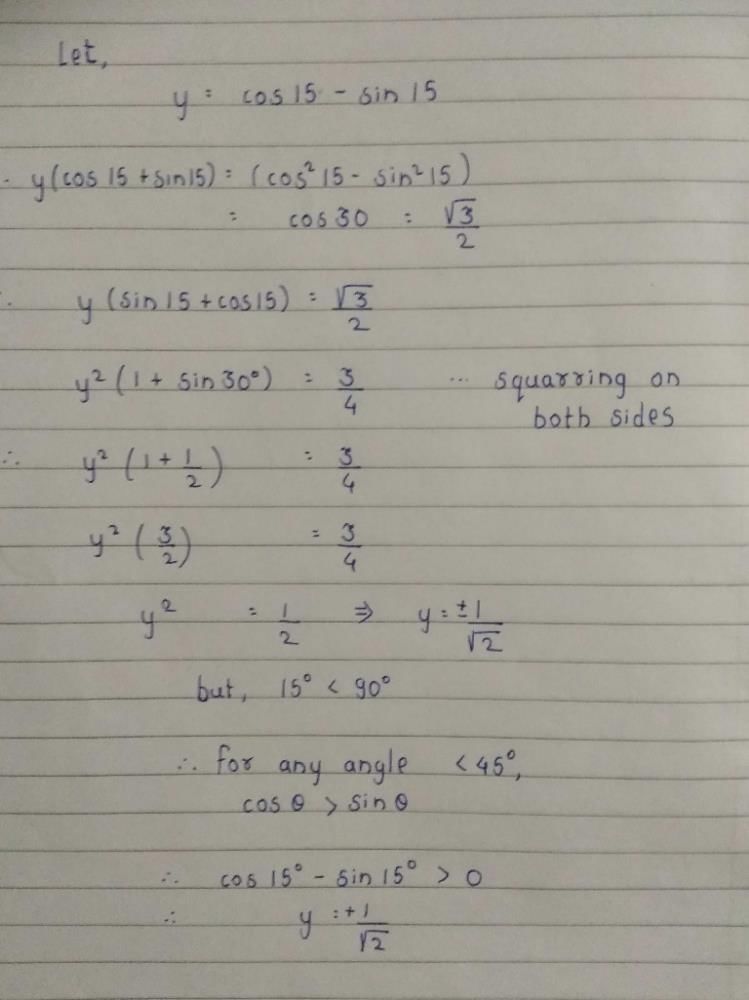 Let,
y = cos 15 - sin 15
∴ y(cos 15 + sin15) = (cos²15 - sin²15)
= cos 30 = √3/2
∴ y (sin 15 + cos 15) = √3/2
y² (1 + sin 30°) = 3/4 ... squarring on
both sides
∴ y² (1 + 1/2) = 3/4
y² (3/2) = 3/4
y² = 1/2 ⇒ y = ±1/√2
but, 15° < 90°
∴ for any angle < 45°,
cos θ > sin θ
∴ cos 15° - sin 15° > 0
∴ y = +1/√2